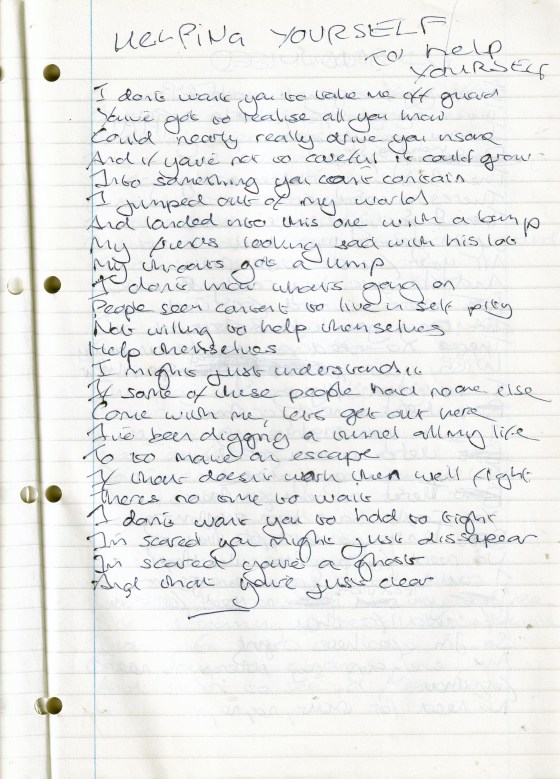 HELPING YOURSELF
TO HELP
YOURSELF
I dont want you to take me off guard
You've got to realise all you know
Could nearly really drive you insane
And if you're not to careful it could grow
Into something you cant contain
I jumped out of my world
And landed into this one with a bump
My friends looking sad with his lot
My throats got a lump
I dont know whats going on
People seem content to live in self pity
Not willing to help themselves
Help themselves
I might just understand it
If some of these people had no one else
Come with me, lets get out here
I've been digging a tunnel all my life
To to make an escape
If that doesn't work then well fight
Theres no time to wait
I dont want you to hold to tight
Im scared you might just dissapear
Im scared you're a ghost
And that you're just clear